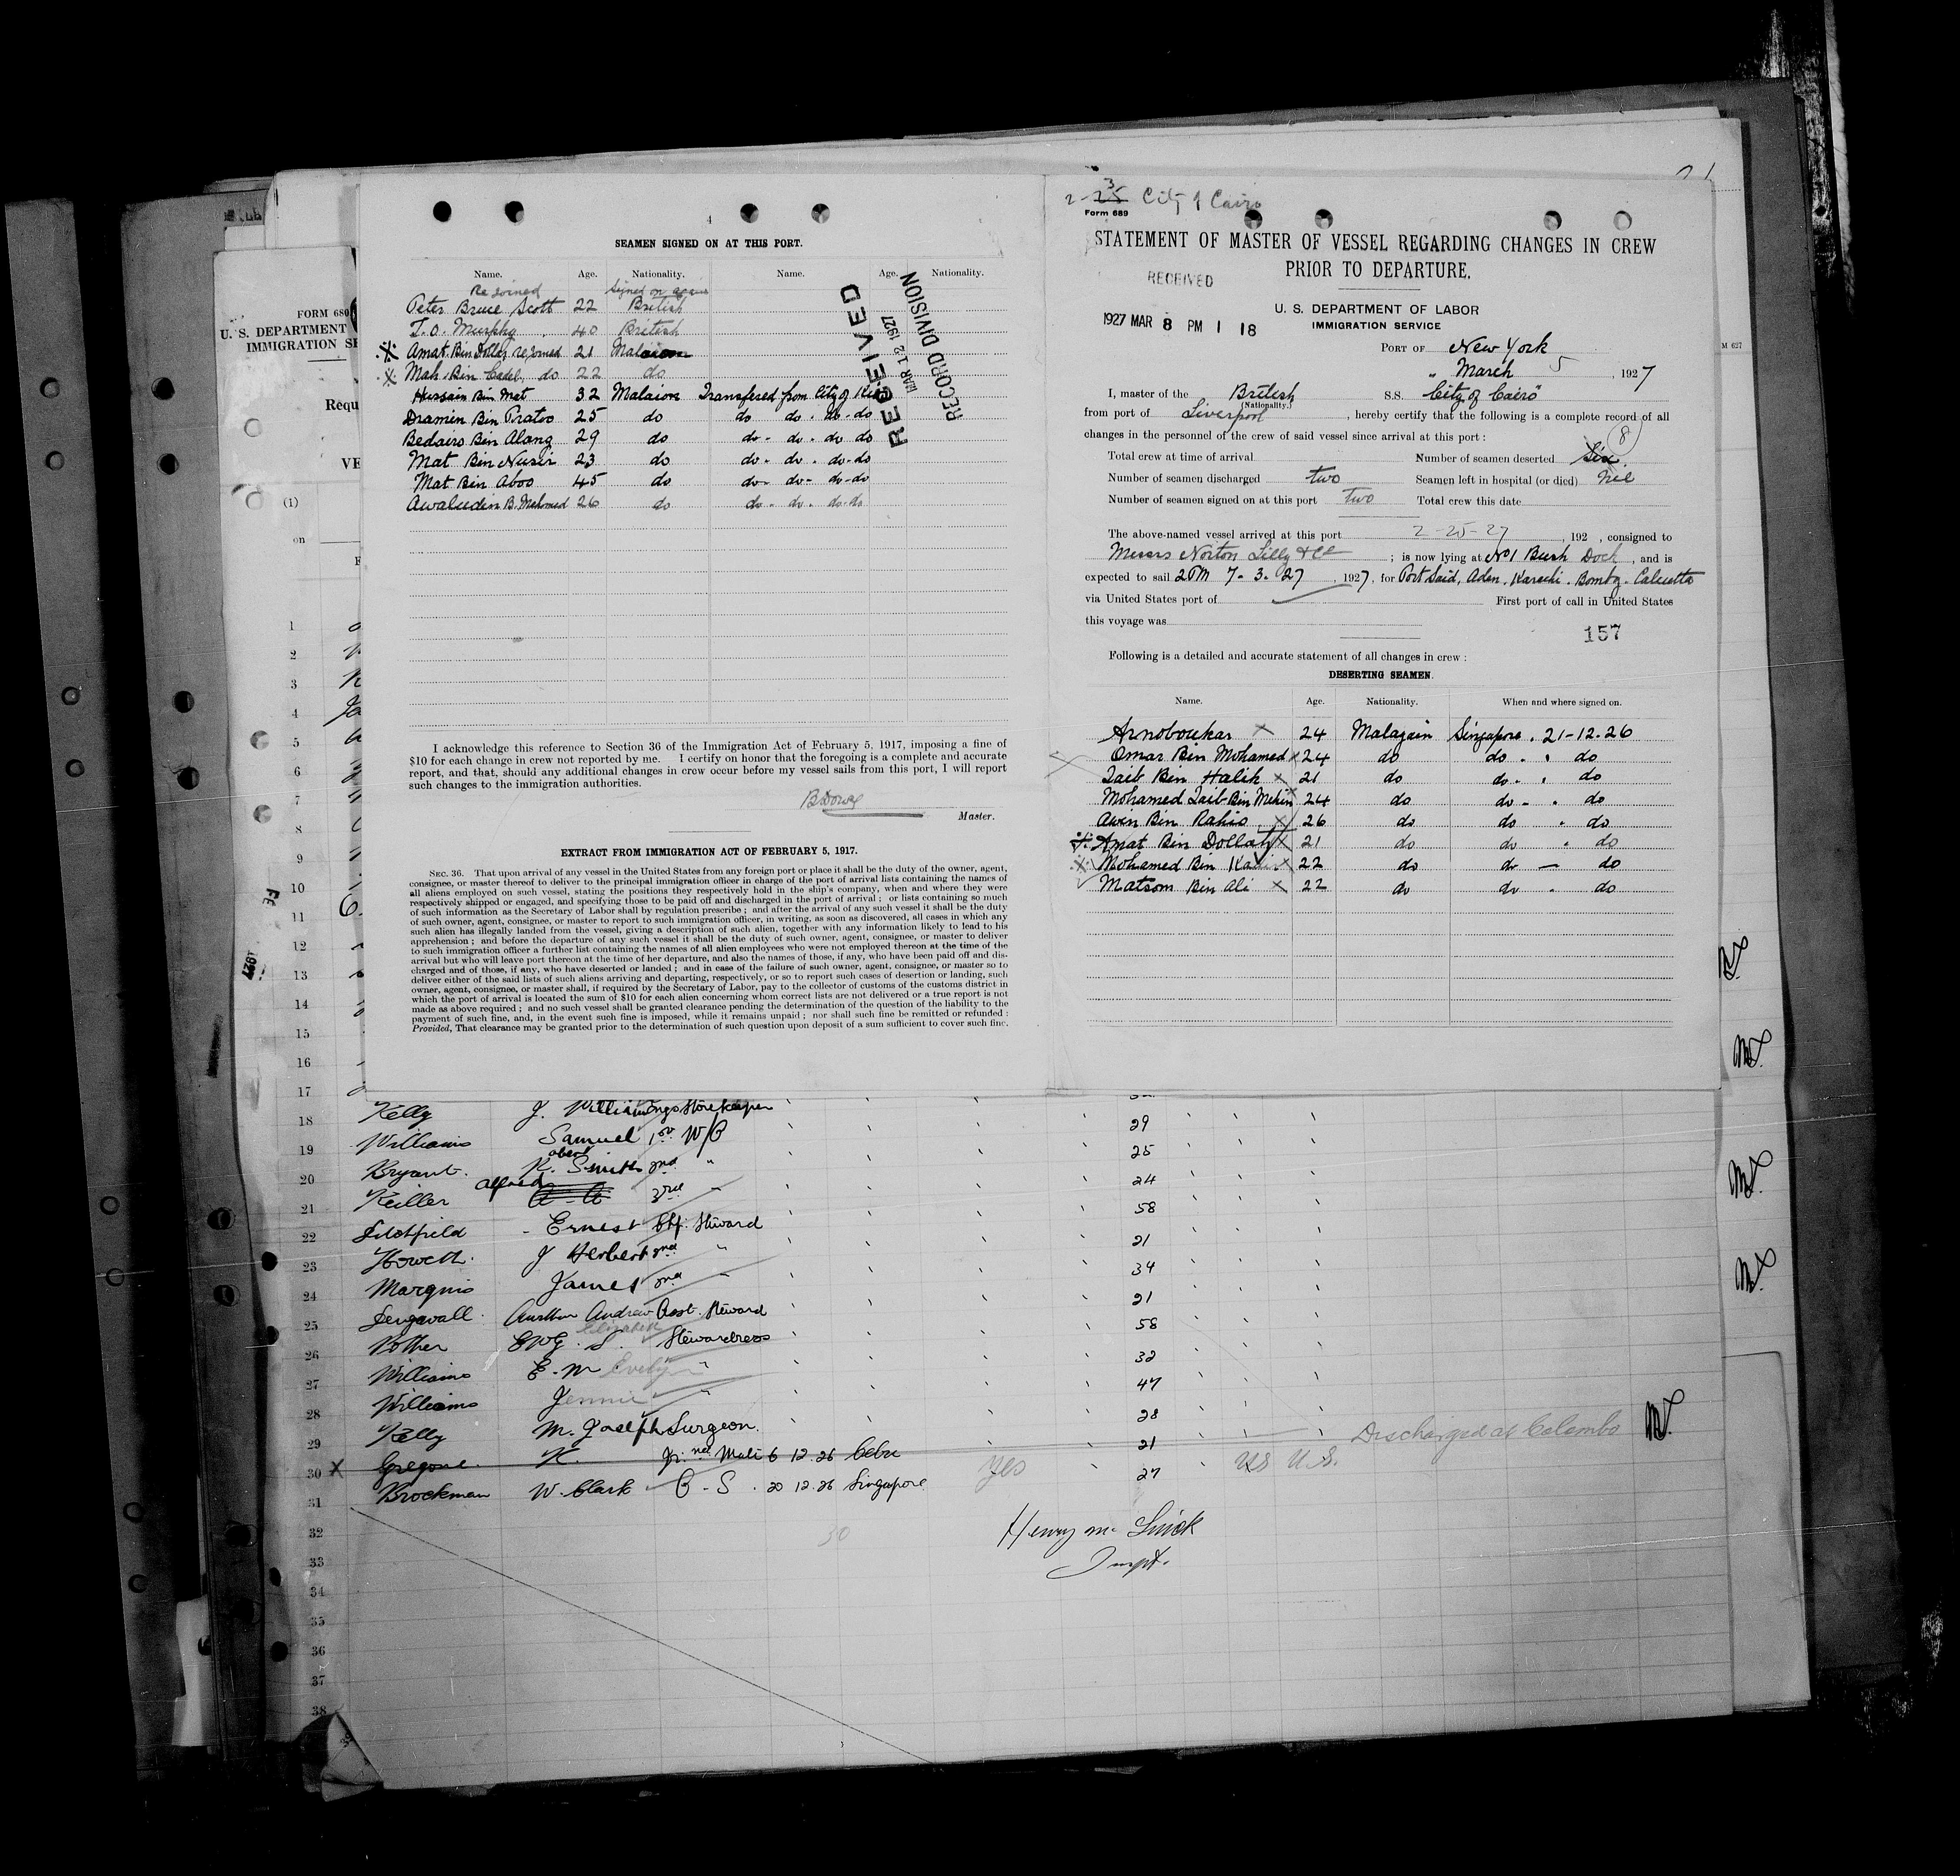 FORM 680
U. S. DEPARTMENT
IMMIGRATION SE
Requ
VE
(1)
on
4
SEAMEN SIGNED ON AT THIS PORT.
Name. Age. Nationality. Name. Age. Nationality.
Rejoined Signed on again
Peter Bruce Scott 22 British
J. O. Murphy 40 British
Amat Bin Dollah rejoined 21
Mah Bin Cadel do 22 do
Hussain Bin Mat 32 Malaion Transfered from City of
Dramin Bin Pratoo 25 do do do - do - do
Bedairo Bin Alang 29 do do - do - do do
Mat Bin Nusir 23 do do - do - do - do
Mat Bin Aboo 45 do do - do - do - do
Awaludin B. Mahomed 26 do do - do - do - do
RECEIVED
MAR 12 1927
RECORD DIVISION
I acknowledge this reference to Section 36 of the Immigration Act of February 5, 1917, imposing a fine of
$10 for each change in crew not reported by me. I certify on honor that the foregoing is a complete and accurate
report, and that, should any additional changes in crew occur before my vessel sails from this port, I will report
such changes to the immigration authorities.
Master.
EXTRACT FROM IMMIGRATION ACT OF FEBRUARY 5, 1917.
SEC. 36. That upon arrival of any vessel in the United States from any foreign port or place it shall be the duty of the owner, agent,
consignee, or master thereof to deliver to the principal immigration officer in charge of the port of arrival lists containing the names of
all aliens employed on such vessel, stating the positions they respectively hold in the ship's company, when and where they were
respectively shipped or engaged, and specifying those to be paid off and discharged in the port of arrival; or lists containing so much
of such information as the Secretary of Labor shall by regulation prescribe; and after the arrival of any such vessel it shall be the duty
of such owner, agent, consignee, or master to report to such immigration officer, in writing, as soon as discovered, all cases in which any
such alien has illegally landed from the vessel, giving a description of such alien, together with any information likely to lead to his
apprehension; and before the departure of any such vessel it shall be the duty of such owner, agent, consignee, or master to deliver
to such immigration officer a further list containing the names of all alien employees who were not employed thereon at the time of the
arrival but who will leave port thereon at the time of her departure, and also the names of those, if any, who have been paid off and dis-
charged and of those, if any, who have deserted or landed; and in case of the failure of such owner, agent, consignee, or master so to
deliver either of the said lists of such aliens arriving and departing, respectively, or so to report such cases of desertion or landing, such
owner, agent, consignee, or master shall, if required by the Secretary of Labor, pay to the collector of customs of the customs district in
which the port of arrival is located the sum of $10 for each alien concerning whom correct lists are not delivered or a true report is not
made as above required; and no such vessel shall be granted clearance pending the determination of the question of the liability to the
payment of such fine, and, in the event such fine is imposed, while it remains unpaid; nor shall such fine be remitted or refunded:
Provided, That clearance may be granted prior to the determination of such question upon deposit of a sum sufficient to cover such fine.
City of Cairo
Form 689
STATEMENT OF MASTER OF VESSEL REGARDING CHANGES IN CREW
PRIOR TO DEPARTURE.
RECEIVED
1927 MAR 8 PM 1 18
U. S. DEPARTMENT OF LABOR
IMMIGRATION SERVICE
PORT OF New York
" March 5, 1927
M 627
I, master of the British S.S. "City of Cairo"
(Nationality.)
from port of Liverpool, hereby certify that the following is a complete record of all
changes in the personnel of the crew of said vessel since arrival at this port:
Total crew at time of arrival Number of seamen deserted Six 8
Number of seamen discharged two Seamen left in hospital (or died) Nil
Number of seamen signed on at this port two Total crew this date
The above-named vessel arrived at this port 2-25-27, 192 , consigned to
Messrs Norton Lilly & Co; is now lying at No1 Bush Dock, and is
expected to sail 2PM 7.3.27, 1927, for Port Said, Aden, Karachi. Bombay. Calcutta
via United States port of First port of call in United States
this voyage was
157
Following is a detailed and accurate statement of all changes in crew:
DESERTING SEAMEN.
Name. Age. Nationality. When and where signed on.
Arnoboukar x 24 Malayain Singapore . 21-12-26
Omar Bin Mohamed x 24 do do " do
Taib Bin Halik x 21 do do " do
Mohamed Taib Bin Mekin x 24 do do - " do
Awin Bin Rahio x 26 do do " do
Amat Bin Dollah x 21 do do " do
Mohamed Bin Kadir x 22 do do — do
Matsom Bin Ali x 22 do do " do
1
2
3
4
5
6
7
8
9
10
11
12
13
14
15
16
17
18 Kelly J. Williamngs Storekeeper
19 Williams Samuel 1st W/O 29
20 Bryant. R. obert Smith 2nd " 25
21 Keiller Alfred 3rd " 24
22 Ernest Chf: Steward 58
23 Howeth. J Herbert 2nd " 21
24 Marquis James 2nd " 34
25 Andrew Asst. Steward 21
26 Stewardess 58
27 Williams E. M Evelyn " 32
28 Williams Jennie " 47
29 Kelly M. Joseph Surgeon. 28
30 X Gregone. K. Jr. 6 12.26 Cebu 21 Discharged at Colombo
31 Brockman W. Clark C. S. 20 12.26 Singapore yes 27 US U.S.
32 30
33
34
35
36
37
38
Inspt.